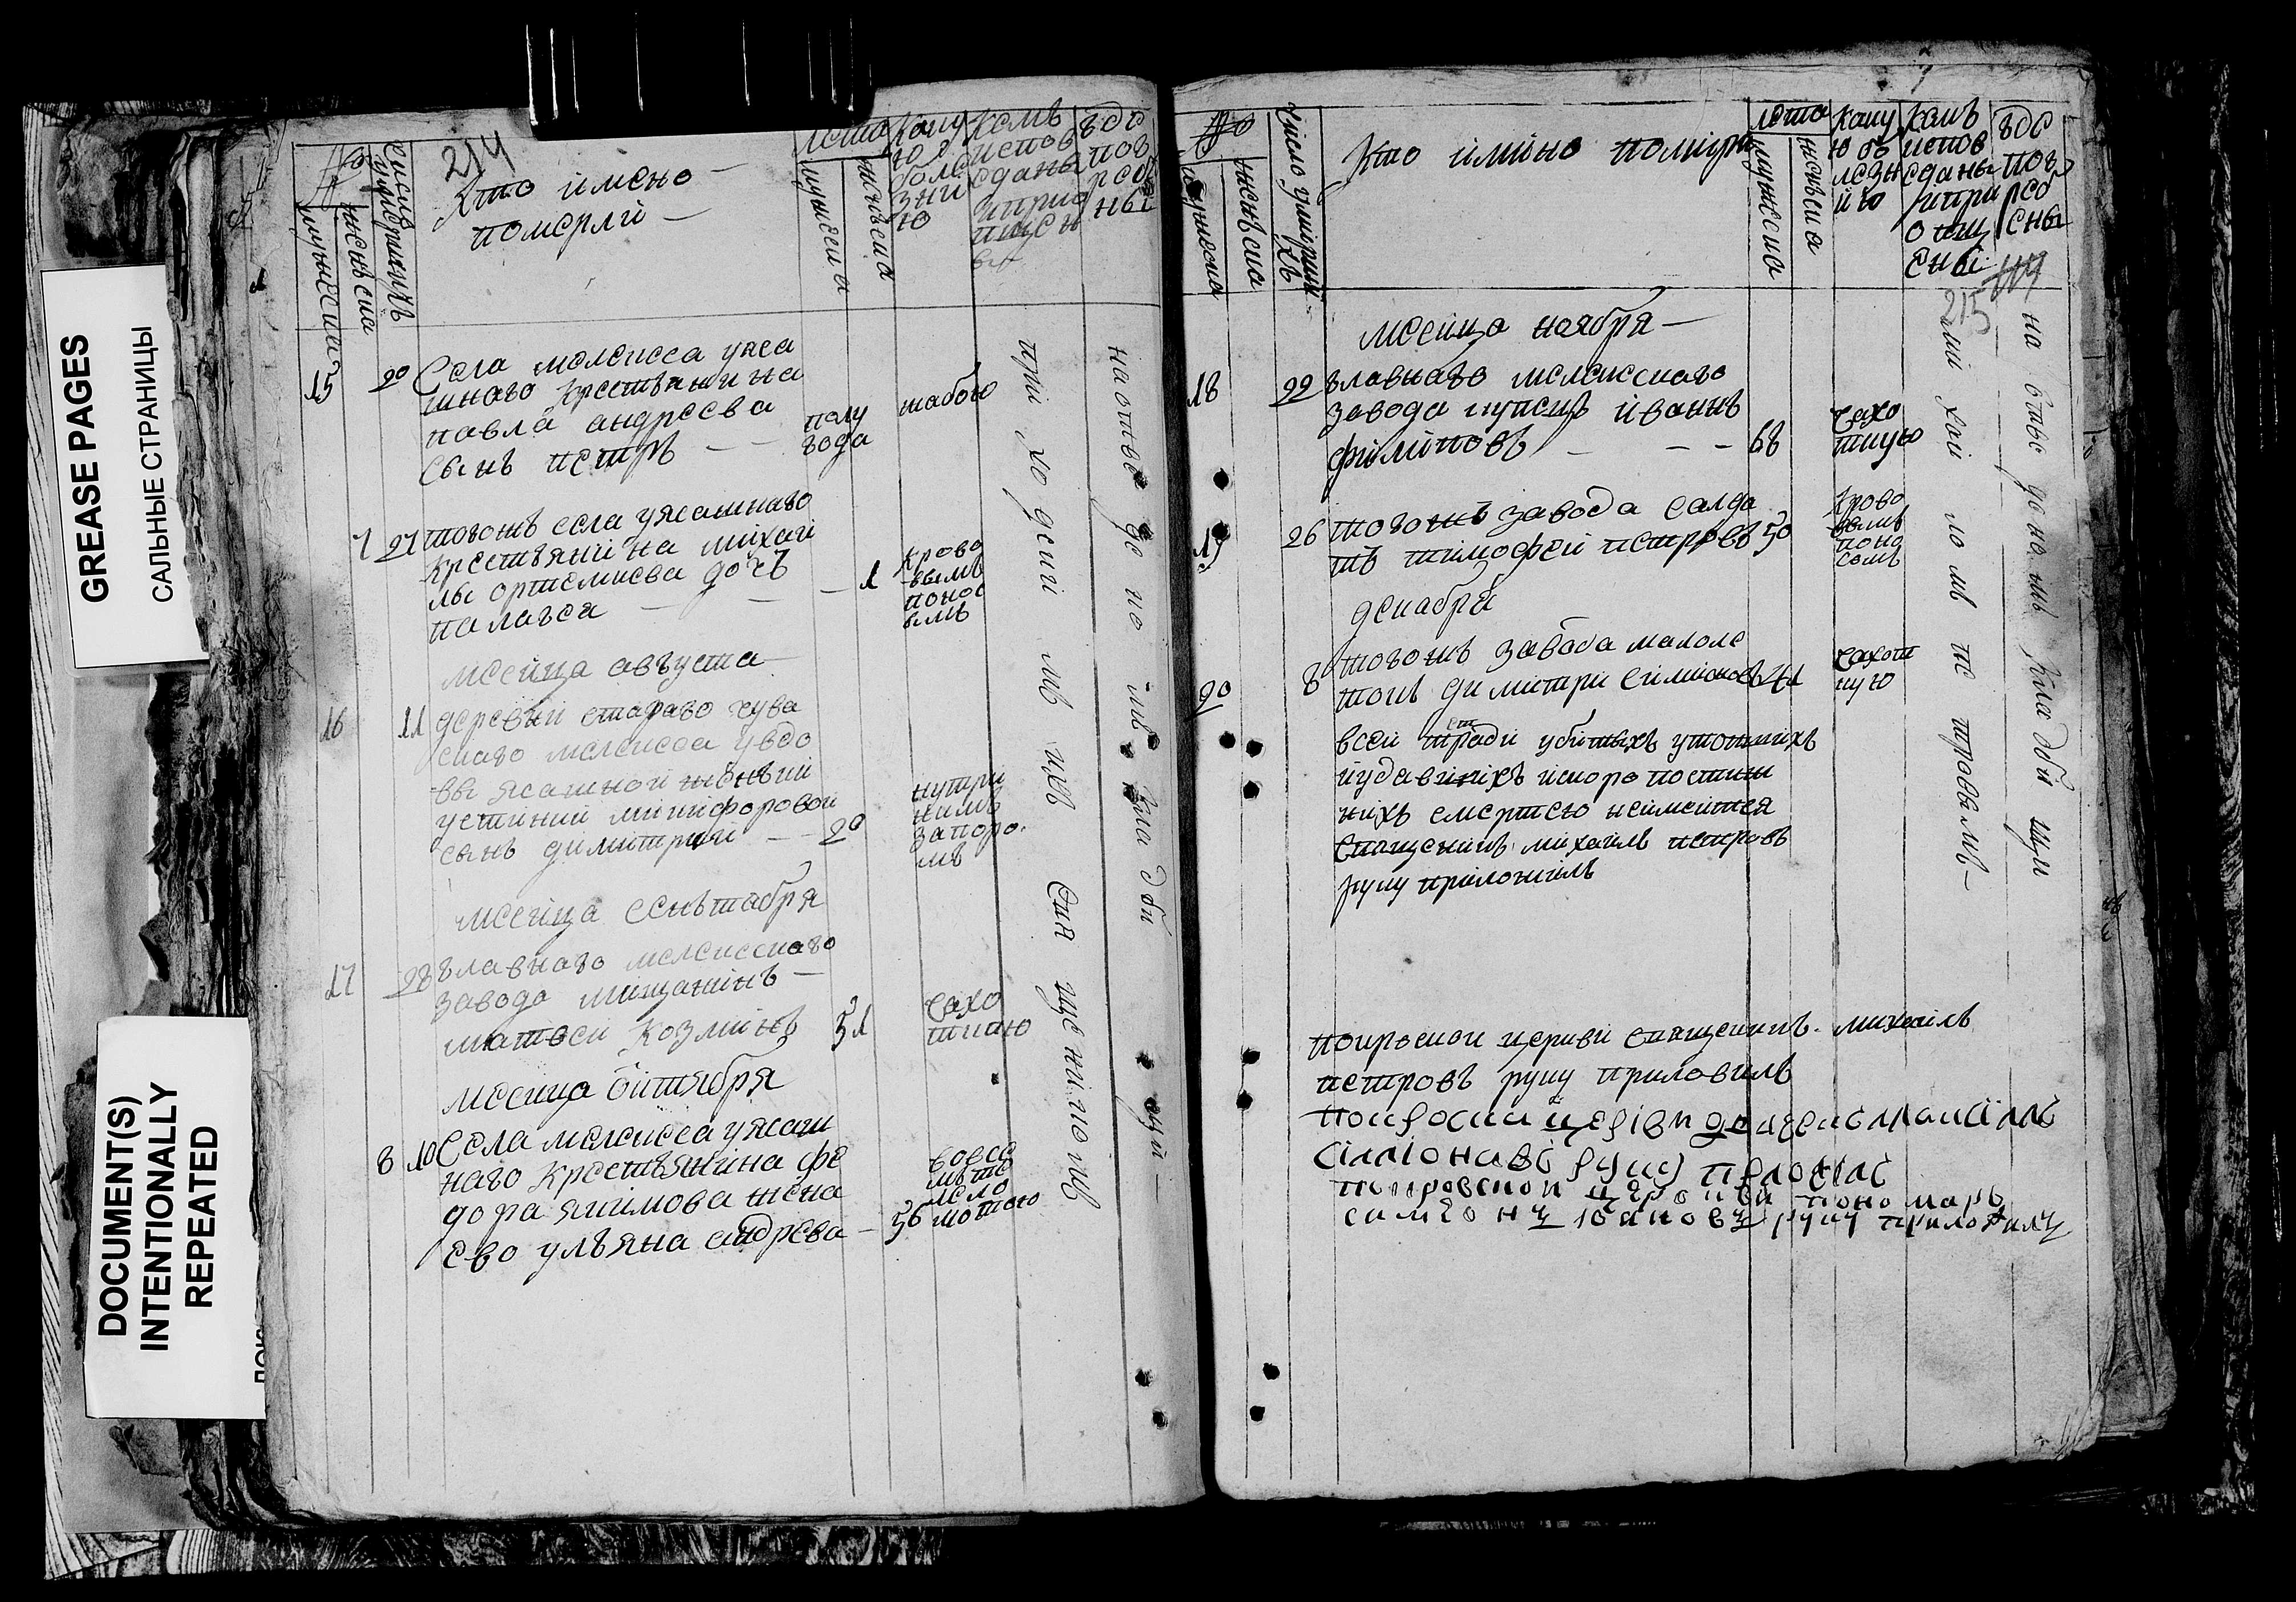 GREASE PAGES
САЛЬНЫЕ СТРАНИЦЫ
DOCUMENT(S)
INTENTIONALLY
REPEATED
214
№
мужеска
женъска
Кто имено
померли
лета
мужеска
женъска
Кому
ю
боле
зни
ю
Кемъ
испов
еданы
и прио
пщен
гдо
пог
ребе
ны
15
20
Села мелекеса уяса
шнаго крестьянина
павла андреева
сынъ петръ
полу
года
жабою
7
27
тогожъ села уясашнаго
крестьянина михаи
лы ортемиева дочъ
палагея
1
крово
вымъ
понос
ымъ
месяца августа
16
11
деревни стараго чува
скаго мелекеса увдо
вы ясашной жонъки
устинии микифоровой
сынъ димитрий
20
нутри
нимъ
запоро
мъ
месяца сеньтабря
17
28
главнаго мелекескаго
завода мещанинъ
матвеи козминъ
51
чахо
ткою
месяца октября
8
10
Села мелекеса уясаш
наго крестьянина фе
дора якимова жена
ево ульяна андрева
56
при ходскимъ
на отведеномъ кладби щи
№
мужеска
женъска
число умерши
хъ
Кто имено помират
лета
мужеска
женъска
Каку
ю бо
лезн
ию
Кемъ
испов
еданы
и при
опщ
ены
гдо
пог
реб
ены
215
месяца ноября
18
22
главнаго мелекескаго
завода купецъ иванъ
филиповъ
68
чахо
ткую
19
26
тогожъ завода салда
тъ тимофеи петровъ
50
крово
вымъ
поно
сомъ
декабря
20
8
тогожъ завода малоле
токъ димитри симионовъ
чахот
кую
убитыхъ утопшихъ
иудавшихъ искоро постиж
нихъ смертею неимеится
священикъ михаилъ петровъ
руку приложилъ
покровской церкви священикъ михаилъ
петровъ руку приложилъ
покровски церкви
симионовъ руку приложил
покровской церкви пономарь
симеонъ ивановъ руку приложилъ